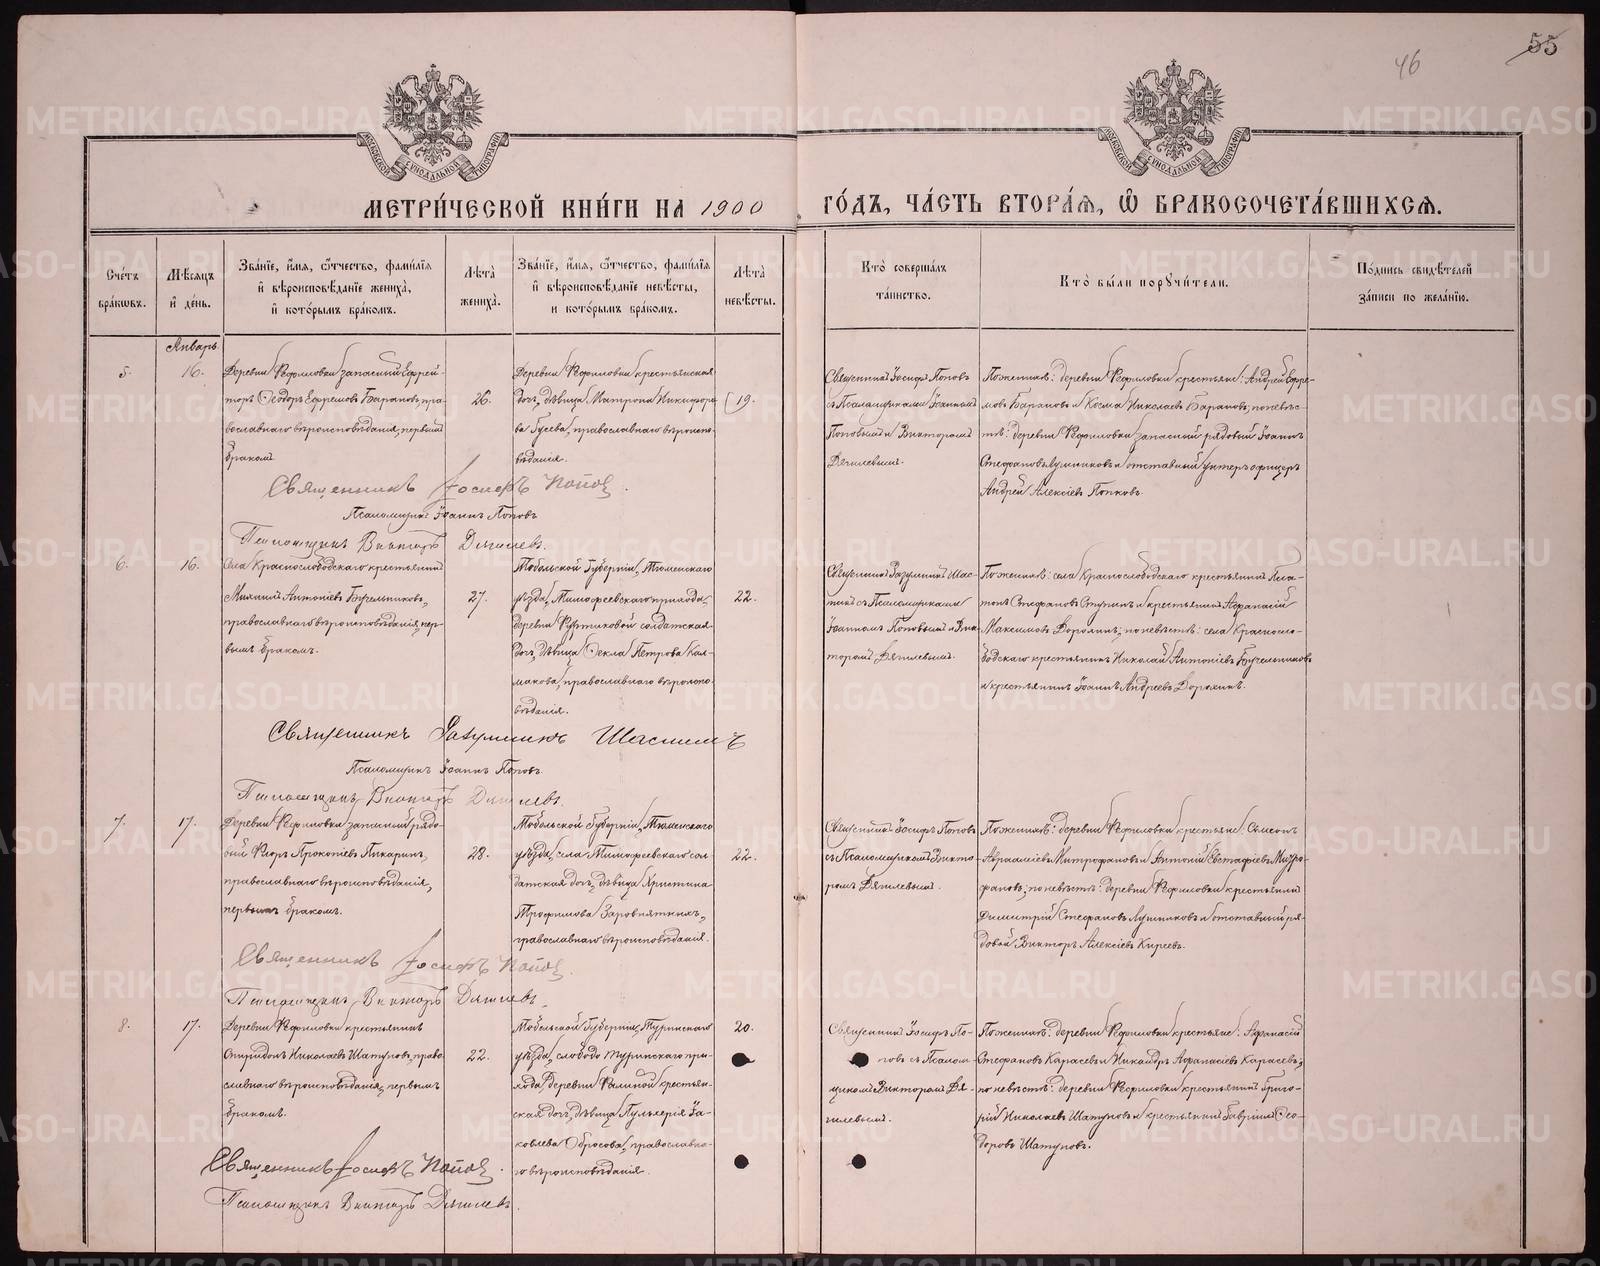 55
46
МЕТРИ́ЧЕСКОЙ КНИ́ГИ НА 1900 ГО́ДЪ, ЧА́СТЬ ВТОРА́Я, Ѡ БРАКОСОЧЕТА́ВШИХСЯ.
Сче́тъ
бра́ковъ.
Мѣ́сяцъ
и҆ де́нь.
Зва́нїе, и҆́мя, ѻ҆́тчество, фами́лїя
и҆ вѣроисповѣ́данїе жениха̀,
и҆ кото́рымъ бра́комъ.
Лѣ́та̀
жениха̀.
Зва́нїе, и҆́мя, ѻ҆́тчество, фами́лїя
и҆ вѣроисповѣ́данїе невѣ́сты,
и кото́рымъ бра́комъ.
Лѣ́та̀
невѣ́сты.
Кто̀ соверша́лъ
та́инство.
Кто̀ бы́ли порꙋчи́тели.
По́дпись свидѣ́телей
за́писи по жела́нїю.
Январь
5.
16.
Деревни
запасный Ефрей-
торъ Ѳеодоръ Ефремовъ Барановъ, пра-
вославнаго вѣроисповѣданія, первымъ
бракомъ.
26.
Деревни
крестьянская
дочь, дѣвица Матрона Никифоро-
ва Гусева, православнаго вѣроиспо-
вѣданія.
19.
Священникъ Іосифъ Поповъ
съ Псаломщиками Іоанномъ
Поповымъ и Викторомъ
Дягилевымъ.
По женихѣ: деревни
крестьяне: Андрей Ефре-
мовъ Барановъ и Косма Николаевъ Барановъ; по невѣс-
тѣ: деревни
запасный рядовой Іоаннъ
Стефановъ
и отставный унтеръ офицеръ
Андрей Алексіевъ Попковъ.
Священникъ Іосифъ Попов.
Псаломщикъ Іоаннъ Поповъ
Псаломщикъ Викторъ Дягилевъ.
6.
16.
Села Краснослободскаго крестьянинъ
Антоніевъ Бучельниковъ,
православнаго вѣроисповѣданія, пер-
вымъ бракомъ.
27.
Тобольской Губерніи, Тюменскаго
уѣзда, Тимофеевскаго прихода,
деревни
солдатская
дочь, дѣвица Ѳекла Петрова Кол-
макова, православнаго вѣроиспо-
вѣданія.
22.
Священникъ Разумникъ Шас-
тинъ съ Псаломщиками
Іоанномъ Поповымъ и Вик-
торомъ Дягилевымъ.
По женихѣ: села Краснослободскаго крестьянинъ Пла-
тонъ Стефановъ Ступинъ и крестьянинъ Афанасій
Максимовъ
по невѣстѣ: села Краснослo-
бодскаго крестьянинъ Николай Антоніевъ Бучельниковъ
и крестьянинъ Іоаннъ Андреевъ
Священникъ Разумникъ Шастинъ
Псаломщикъ Іоаннъ Поповъ.
Псаломщикъ Викторъ Дягилевъ.
7.
17.
Деревни
запасный рядо-
вой
Прокопіевъ Пикаринъ,
православнаго вѣроисповѣданія,
первымъ бракомъ.
28.
Тобольской Губерніи, Тюменскаго
уѣзда, села Тимофеевскаго сол-
датская дочь, дѣвица Христина
Трофимова Заровнятныхъ,
православнаго вѣроисповѣданія.
22.
Священникъ Іосифъ Поповъ
съ Псаломщикомъ Викто-
ромъ Дягилевымъ.
По женихѣ: деревни
крестьяне: Симеонъ
Авраамiевъ Митрофановъ и Антоній Евстафіевъ Митро-
фановъ; по невѣстѣ: деревни
крестьянинъ
Димитрій Стефановъ Лушниковъ и отставный ря-
довой Викторъ Алексіевъ Киреевъ.
Священникъ Іосифъ Попов.
Псаломщикъ Викторъ Дягилевъ.
8.
17.
Деревни
крестьянинъ
Спиридонъ Николаевъ Шатуновъ, право-
славнаго вѣроисповѣданія, первымъ
бракомъ.
22.
Тобольской Губерніи, Туринскаго
уѣзда, слободо Туринскаго при-
хода, деревни
крестьян-
ская дочь, дѣвица Пульхерія Іа-
ковлева Обросова, православна-
го вѣроисповѣданія.
20.
Священникъ Іосифъ По-
повъ съ Псалом-
щикомъ Викторомъ Дя-
гилевымъ.
По женихѣ: деревни
крестьяне: Афанасій
Стефановъ Карасевъ и Никандръ Афанасіевъ Карасевъ;
по невѣстѣ: деревни
крестьянинъ Григо-
рій Николаевъ Шатуновъ и крестьянинъ Гавріилъ Ѳео-
доровъ Шатуновъ.
Священникъ Іосифъ Попов.
Псаломщикъ Викторъ Дягилевъ.
METRIKI.GASO-URAL.RU